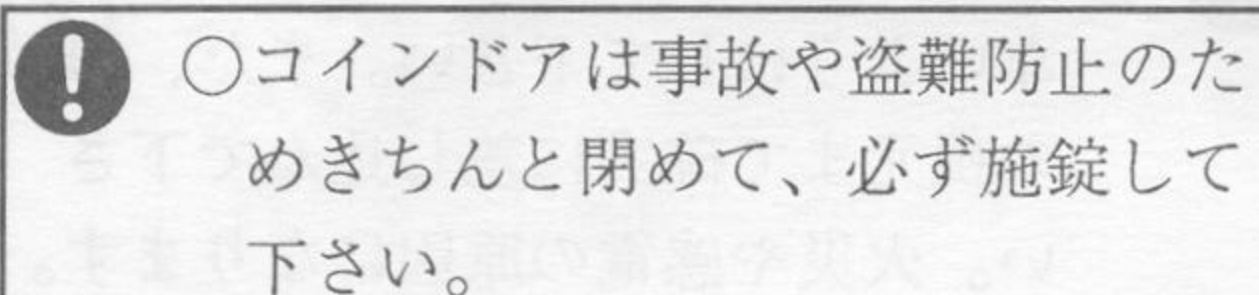 ○コインドアは事故や盗難防止のた
めきちんと閉めて、必ず施錠して
下さい。